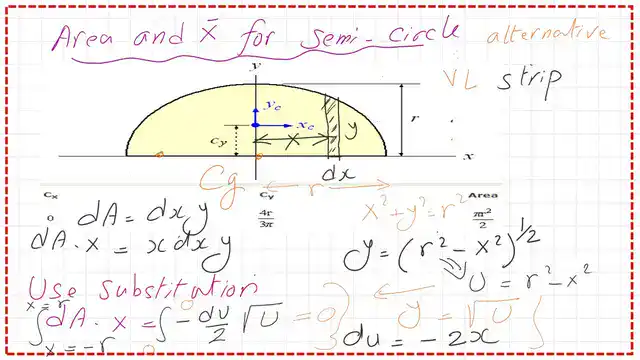 Area and x̄ for semi-circle alternative
VL strip
y
y_c
x_c
c_y
x
y
r
x
dx
Cg
r
C_x
C_y
Area
0
4r/3π
πr²/2
dA = dx y
x² + y² = r²
dA · x = x dx y
y = (r² - x²)^1/2
U = r² - x²
Use substitution
x = r
∫ dA · x = ∫ - du/2 √U = 0
x = -r
0
0
y = √U
du = - 2x